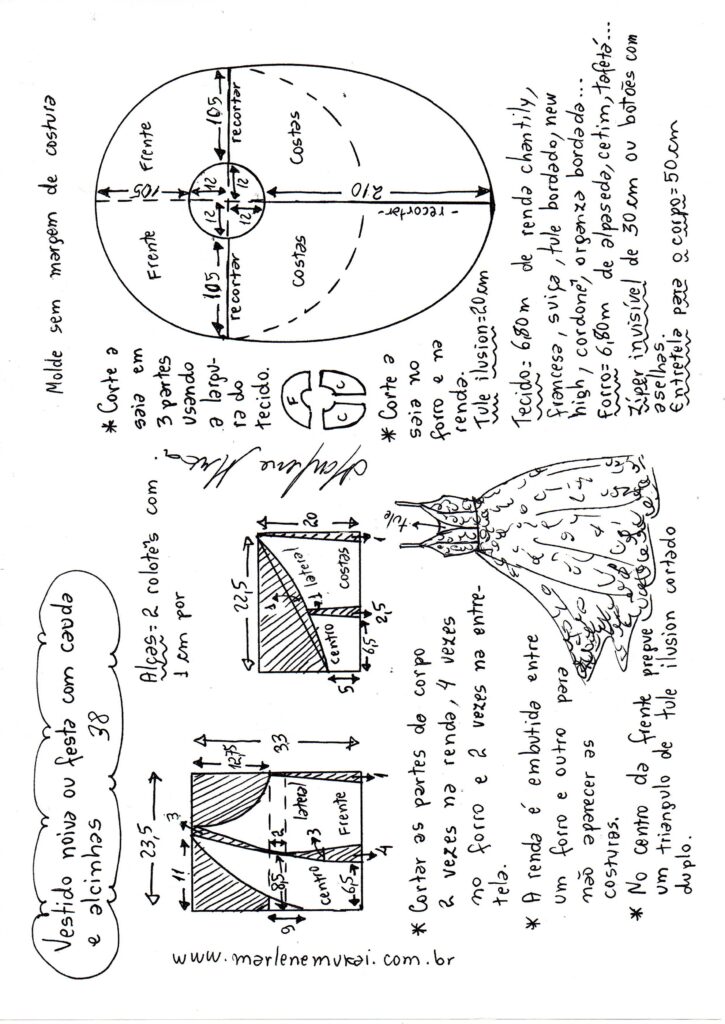 Vestido noiva ou festa com cauda
e alcinhas 38
Molde sem margem de costura
23,5
11
3
12,75
33
8,5
2
lateral
centro
3
Frente
6,5
9
4
1
Alças= 2 rolotês com
1 cm por
22,5
20
1
1
lateral
costas
centro
5
6,5
2,5
1
* Corte a
saia em
3 partes
usando
a largu-
ra do
tecido.
F
C
C
* Corte a
saia no
forro e na
renda.
Tule ilusion=20cm
Frente
Frente
105
105
105
12
12
12
12
recortar
recortar
Costas
Costas
210
-recortar-
www.marlenemukai.com.br
* Cortar as partes do corpo
2 vezes na renda, 4 vezes
no forro e 2 vezes na entre-
tela.
* A renda é embutida entre
um forro e outro para
não aparecer as
costuras.
* No centro da frente pregue
um triangulo de tule ilusion cortado
duplo.
tule
Marlene Mukai
Tecido= 6,80m de renda chantily,
francesa, suiça, tule bordado, new
high, cordonê, organza bordada...
Forro= 6,80m de alpaseda, cetim, tafetá...
Zíper invisível de 30cm ou botões com
aselhas.
Entretela para o corpo=50cm